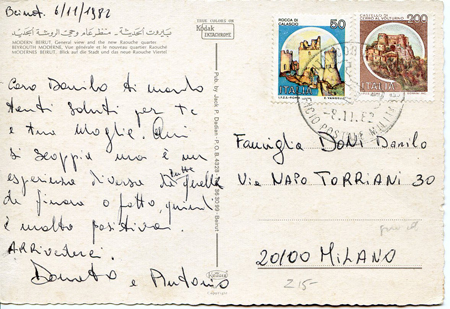 Beirut, 6/11/1982
بيروت الحديثة - منظر عام وحي الروشة الجديد
MODERN BEIRUT, General view and the new Raouche quarter
BEYROUTH MODERNE, Vue générale et le nouveau quartier Raouché
MODERNES BEIRUT, Blick auf die Stadt und das neue Raouche Viertel
Caro Danilo ti mando
tanti saluti per te
e tua moglie. Qui
si scoppia ma è un'
esperienza diversa da tutte quelle
di finora o fatto, quindi
è molto positiva.
ARRIVEDERCI
Donato e Antonio
Kodak
EKTACHROME
Pub. by Jack P. Dadian - P.O.B. 4328
Beirut
ROCCA DI
CALASCIO
50
ITALIA
200
ITALIA
-8.11.82
Famiglia DONI Danilo
Via NAPO TORRIANI 30
20100 MILANO
215-